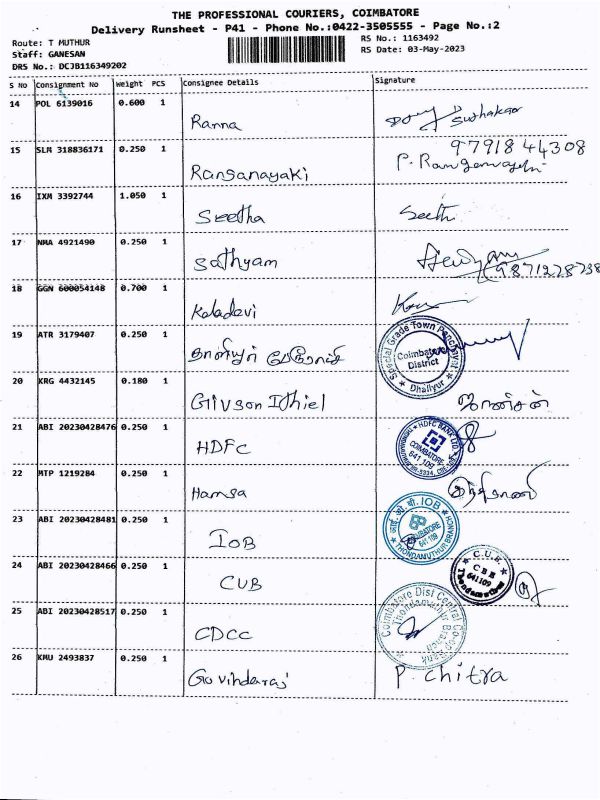 THE PROFESSIONAL COURIERS, COIMBATORE
Delivery Runsheet - P41 - Phone No.:0422-3505555 - Page No.:2
Route: T MUTHUR
RS No.: 1163492
Staff: GANESAN
RS Date: 03-May-2023
DRS No.: DCJB116349202
S No Consignment No Weight PCS Consignee Details Signature
14 POL 6139016 0.600 1 Ranna Sudhakar
15 SLM 318836171 0.250 1 Ranganayaki 97918 44308
P. Ranganayaki
16 IXM 3392744 1.050 1 Seetha Seeth
17 NMA 4921490 0.250 1 Sathyam 9871278738
18 GGN 600054148 0.700 1 Kaladevi
19 ATR 3179407 0.250 1
Special Grade Town Panchayat
Coimbatore
District
Dhaliyur
20 KRG 4432145 0.180 1 Givson Ithiel ஜான்சன்
21 ABI 20230428476 0.250 1 HDFC
HDFC BANK LTD
COIMBATORE
641 109
22 MTP 1219284 0.250 1 Hamsa
23 ABI 20230428481 0.250 1 IOB
आई. ओ. बी. IOB
COIMBATORE
641 109
THONDAMUTHUR BRANCH
24 ABI 20230428466 0.250 1 CUB
C.U.B.
CBE
641109
Thondamuthur
25 ABI 20230428517 0.250 1 CDCC
Coimbatore Dist Central Co-op Bank
Thondamuthur Branch
26 KMU 2493837 0.250 1 Govindaraj P. Chitra